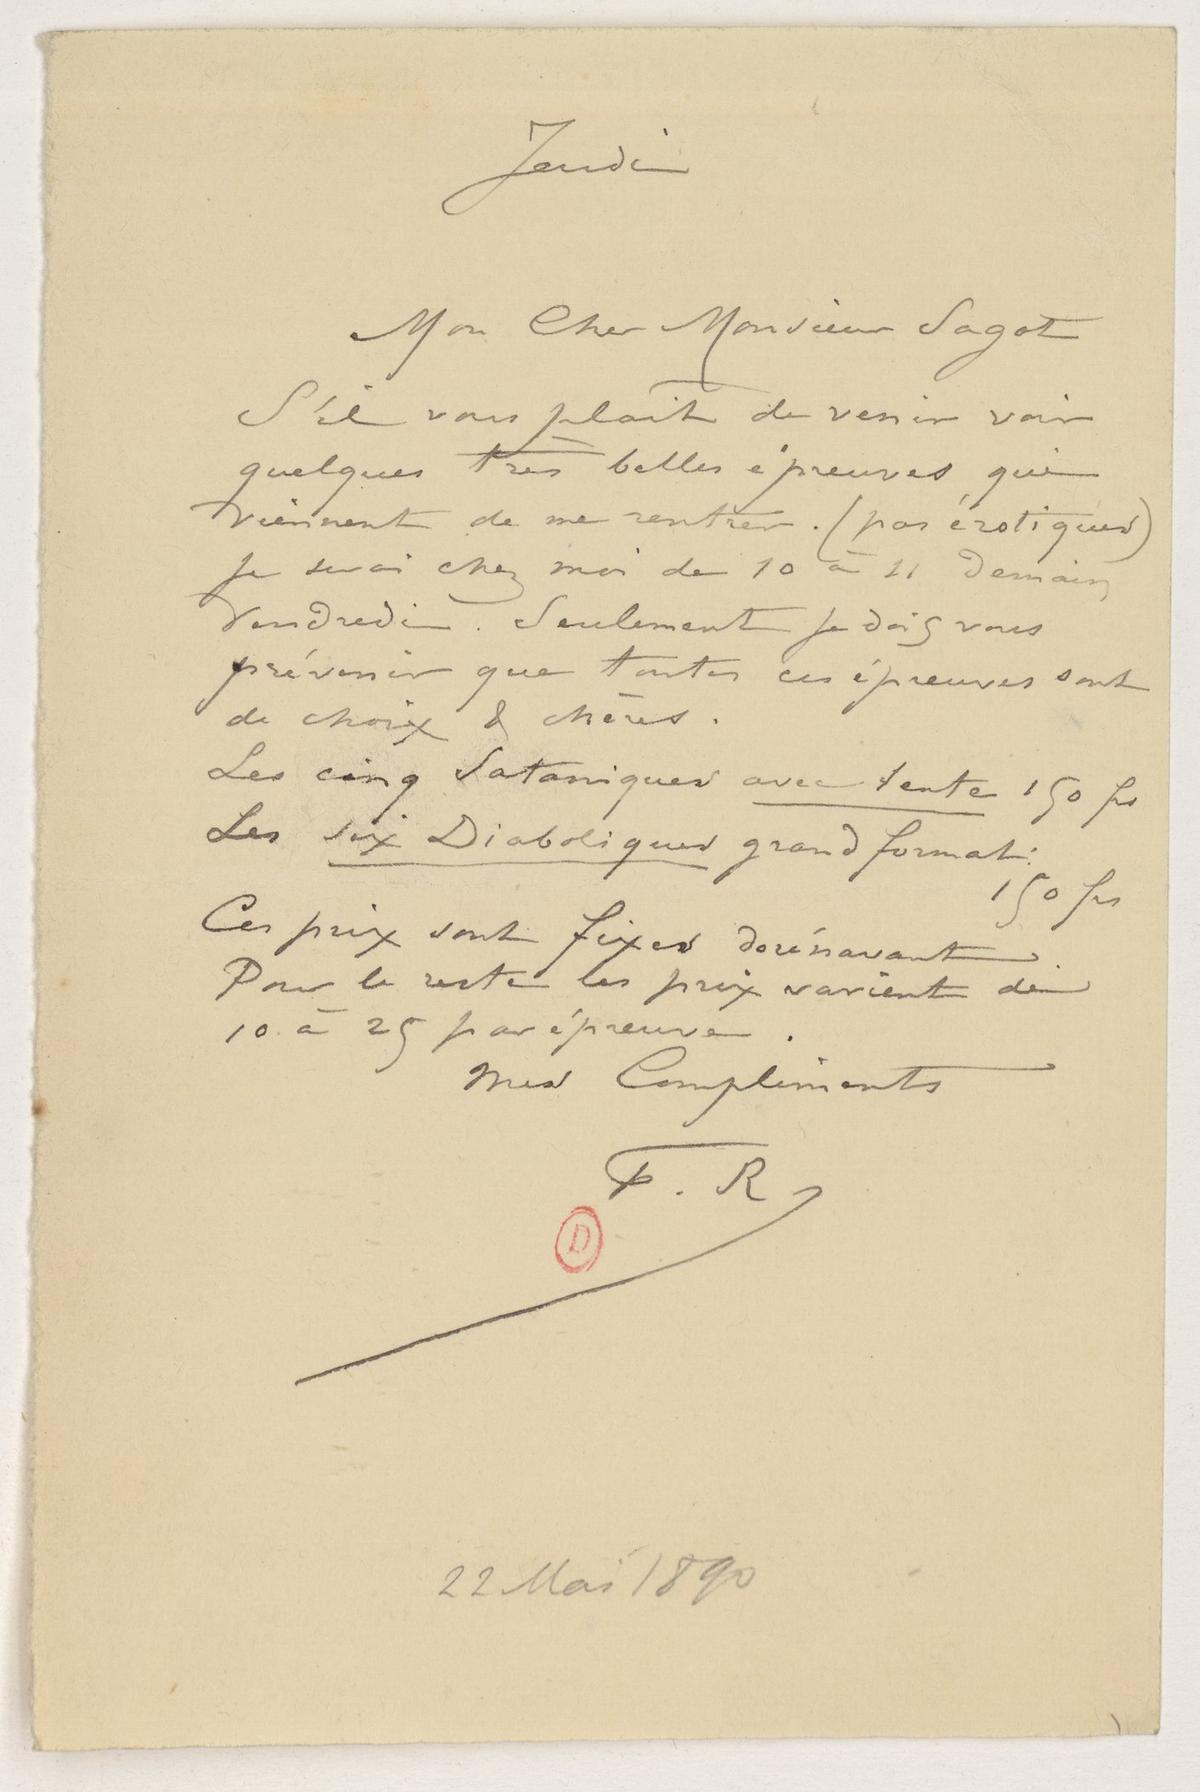 Jeudi
Mon Cher Monsieur Sagot
S'il vous plait de venir voir
quelques très belles épreuves qui
viennent de me rentrer. (pas érotiques)
Je serai chez moi de 10 à 11 demain
Vendredi. Seulement je dois vous
prévenir que toutes ces épreuves sont
de choix & chères.
Les cinq Sataniques avec texte 150 frs
Les six Diaboliques grand format.
150 frs
Ces prix sont fixes dorénavant
Pour le reste les prix varient de
10 à 25 par épreuve.
Mes Compliments
F. R
D
22 Mai 1890